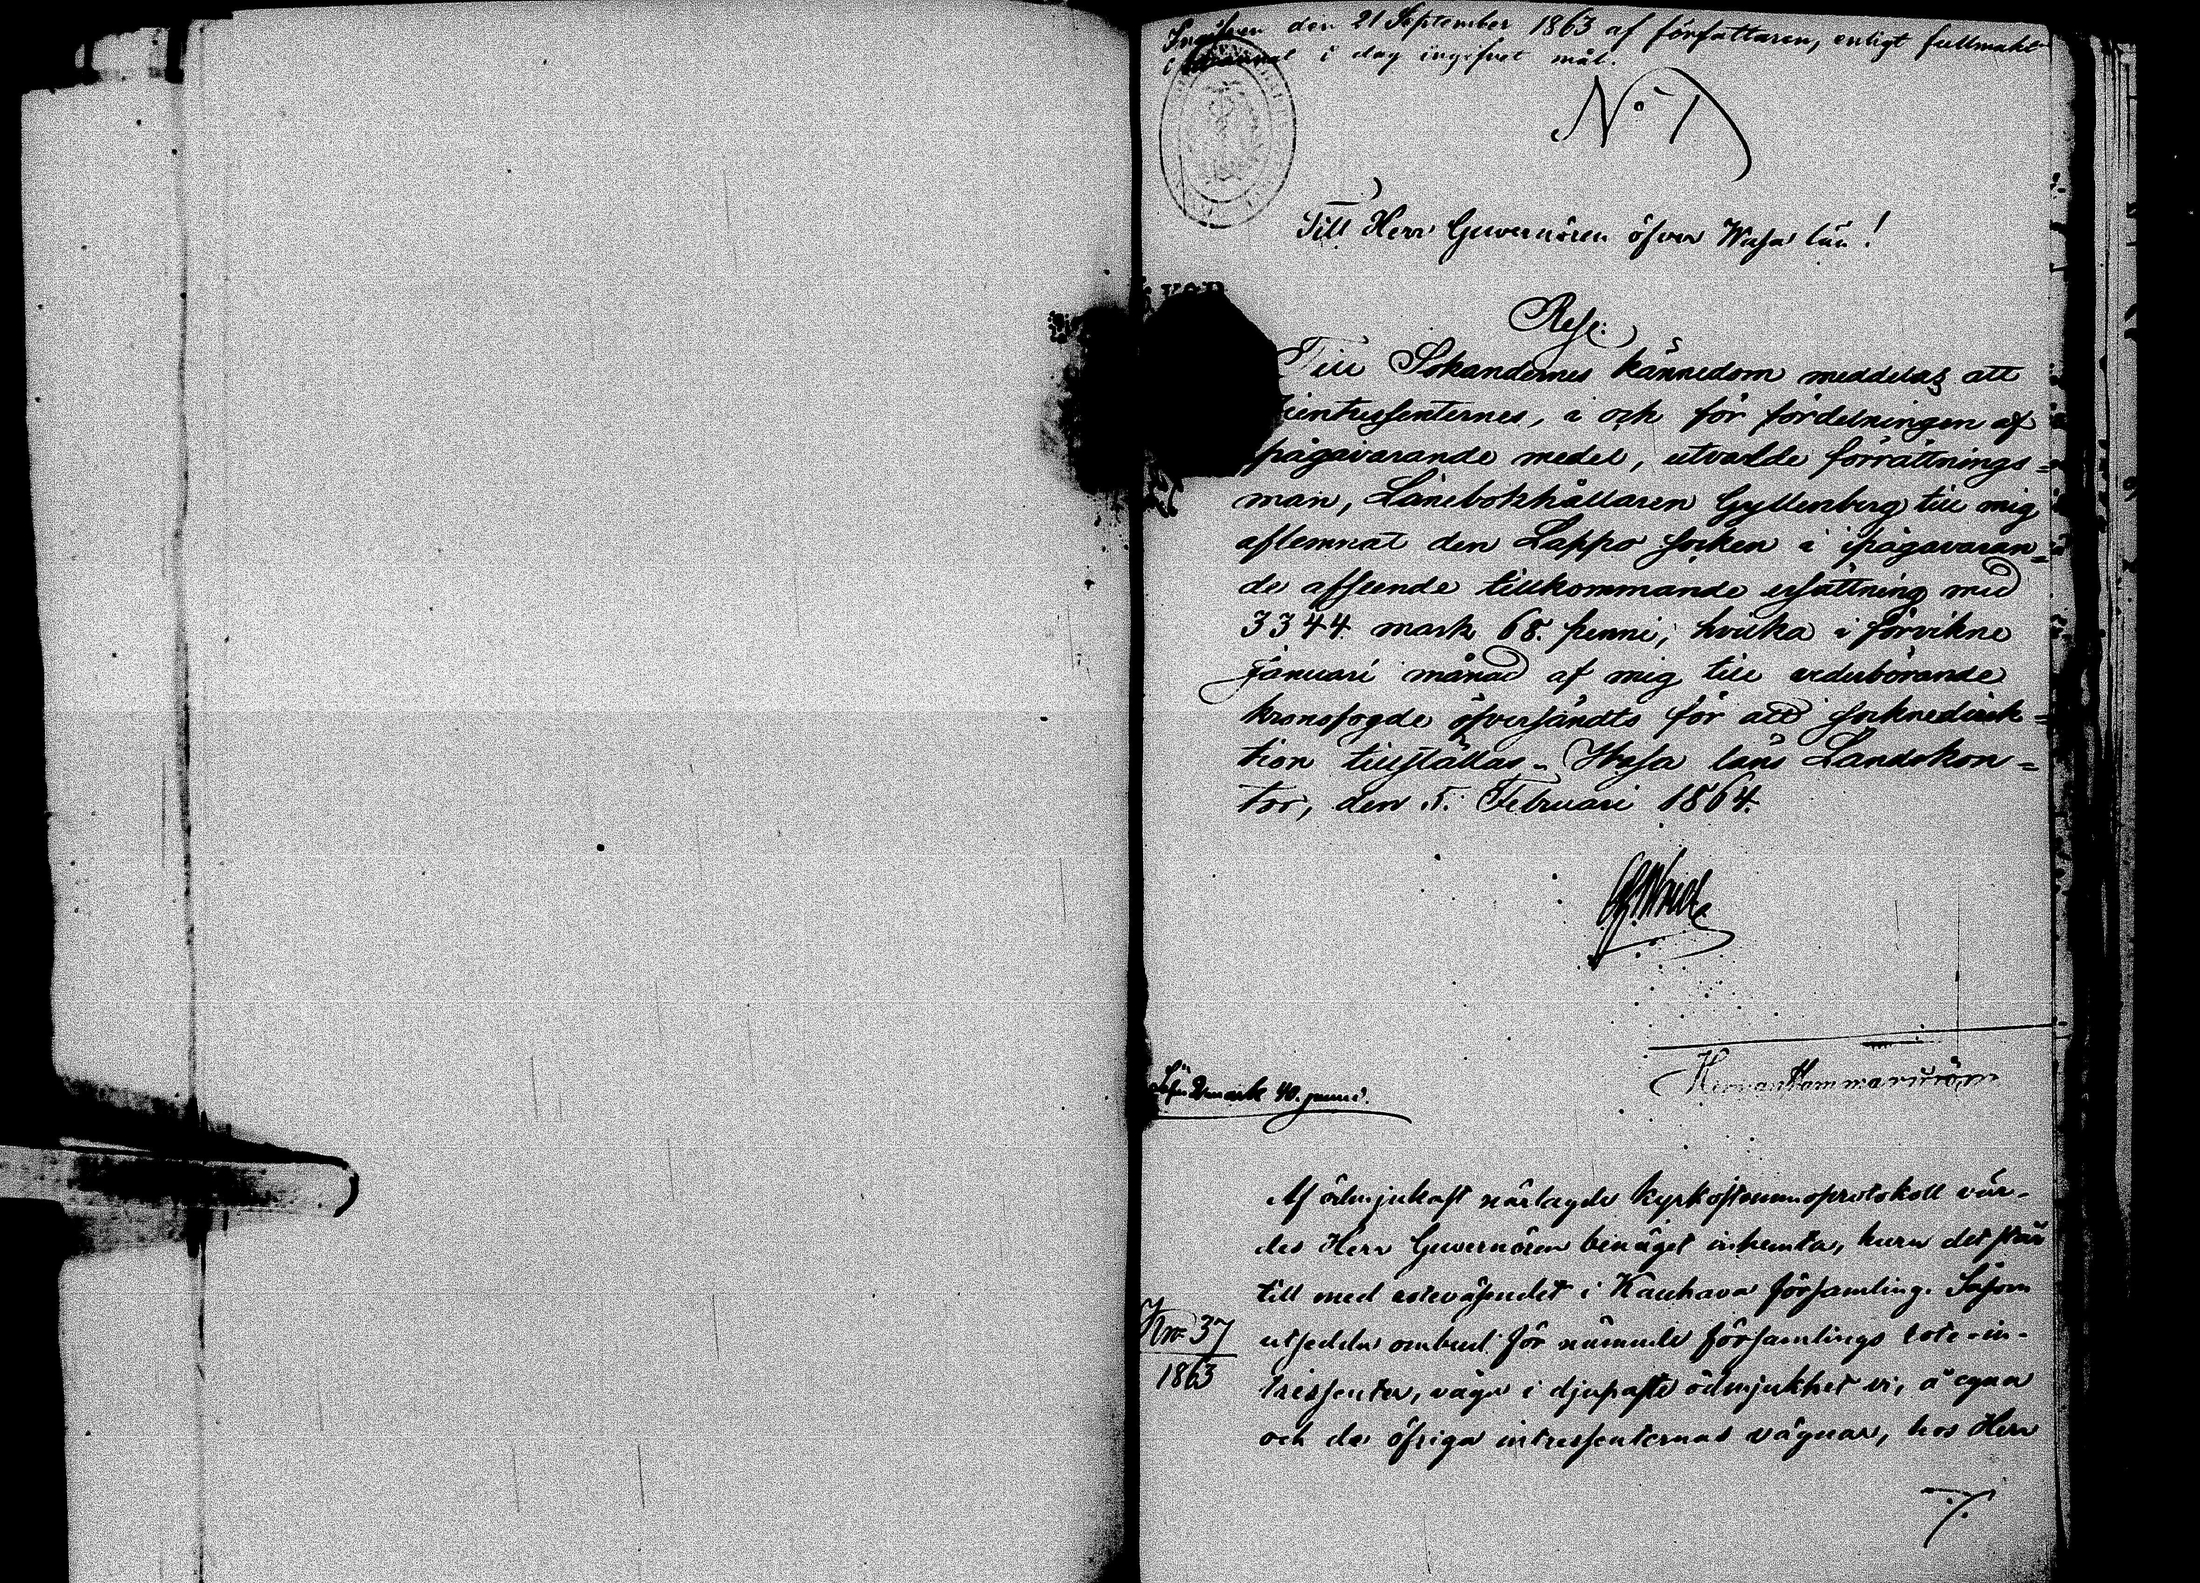 Ingifven den 21 September 1863 af författaren, enligt fullmakt
i annat i dag ingifvet mål.
No 1
Till Herr Guvernören öfver Wasa län!
Res:
Till Sökandernes kännedom meddelas att
intressenternes, i och för fördelningen af
ifrågavarande medel, utvalde förrättnings=
man, Länebokhållaren Gyllenberg till mig
aflemnat den Lappo socken i ifrågavaran=
de afseende tillkommande ersättning med
3344 mark 68. penni, hvilka i förvikne
januari månad af mig till vederbörande
kronofogde öfversändts för att socknedirek=
tion tillställas. Wasa läns Landskon=
tor, den 5. Februari 1864.
Herman Hammarström
Lösen 2 mark 40. penni.
Af ödmjukast närlagde kyrkostämmoprotokoll vär-
des Herr Guvernören benäget inhemta, huru det står
till med roteväsendet i Kauhava församling. Såsom
Nro 37
1863
utsedda ombud för nämnde församlings rote-in-
tressenter, våga i djupaste ödmjukhet vi, å egna
och de öfriga intressenternas vägnar, hos Herr
7.